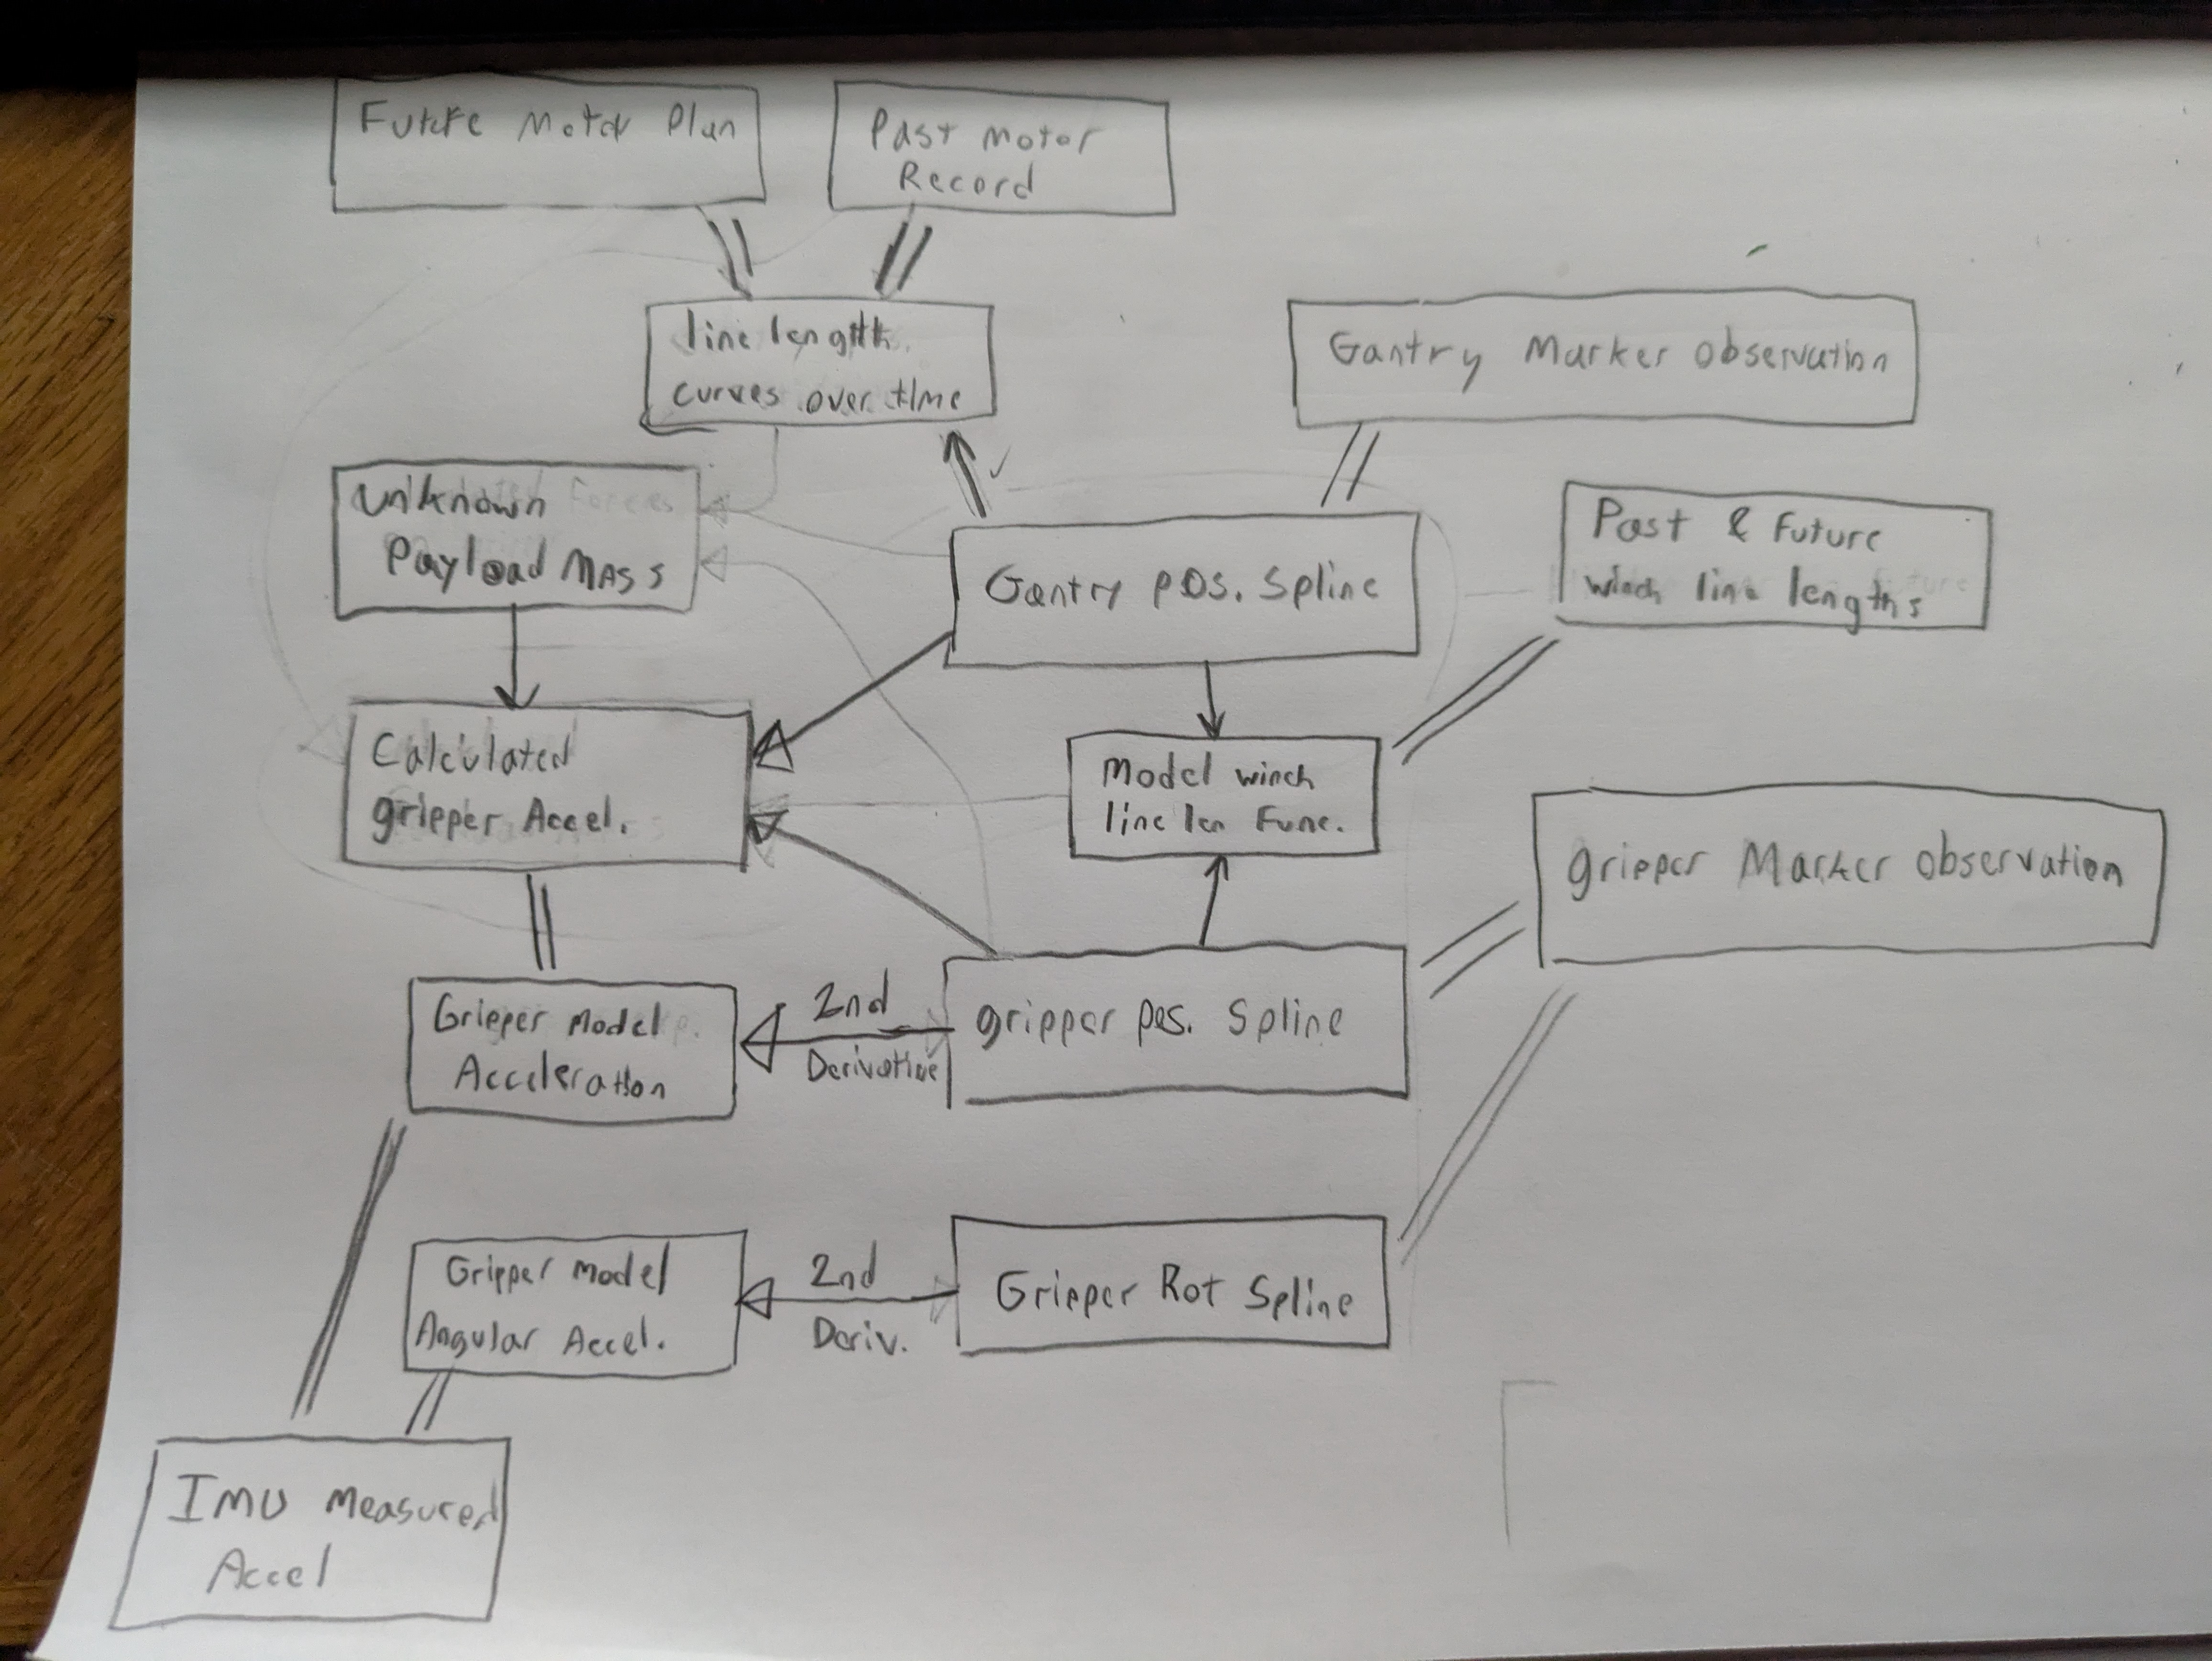 Future Motor Plan
Past Motor
Record
line length
curves over time
Gantry Marker observation
Unknown
Payload Mass
Gantry pos. Spline
Past & Future
winch line lengths
Calculated
gripper Accel.
Model winch
line len Func.
gripper Marker observation
Gripper Model
Acceleration
2nd
Derivative
gripper pos. Spline
Gripper Model
Angular Accel.
2nd
Deriv.
Gripper Rot Spline
IMU Measured
Accel